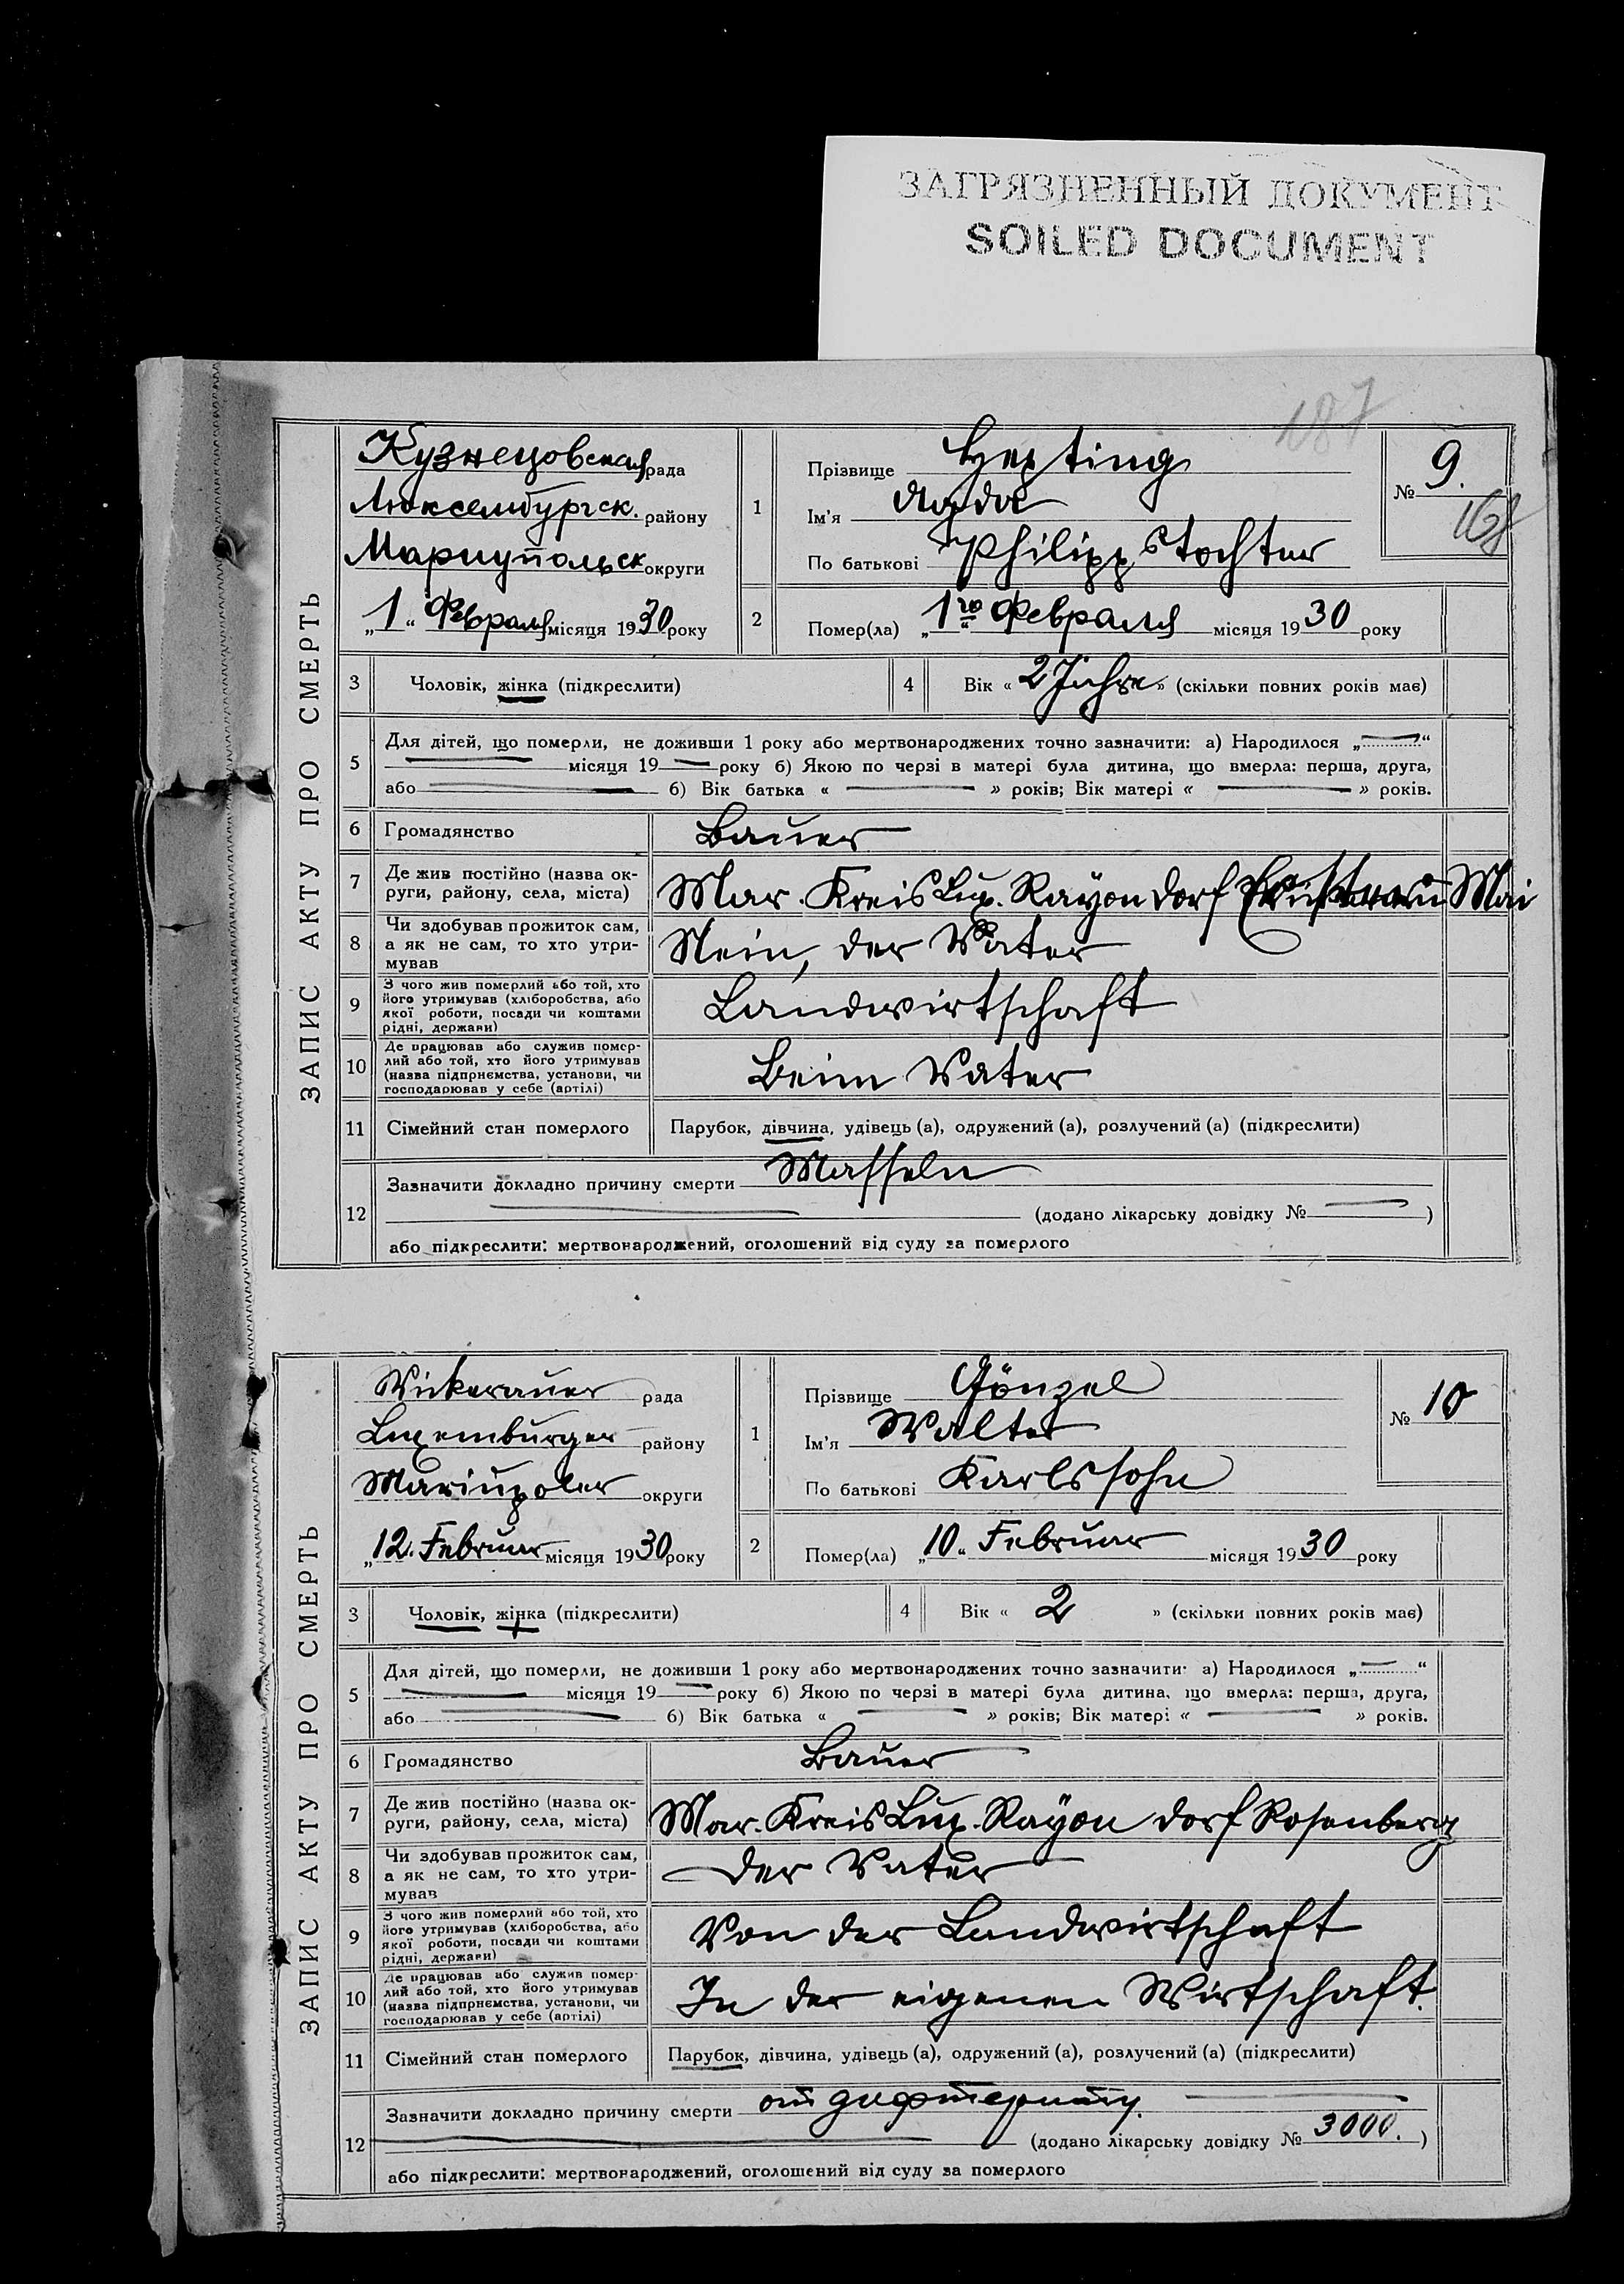 ЗАГРЯЗНЕННЫЙ ДОКУМЕНТ
SOILED DOCUMENT
187
ЗАПИС АКТУ ПРО СМЕРТЬ
Кузнецовская рада
Люксембургск. району
Мариупольск округи
„1“ Февраля місяця 1930 року
1
Прізвище
Ім'я
По батькові Philipps tochter
№ 9.
168
2 Помер(ла) „1го“ Февраля місяця 1930 року
3 Чоловік, жінка (підкреслити)
4 Вік « 2 Jahre » (скільки повних років має)
5 Для дітей, що померли, не доживши 1 року або мертвонароджених точно зазначити: а) Народилося „ “
місяця 19 року б) Якою по черзі в матері була дитина, що вмерла: перша, друга,
або б) Вік батька « » років; Вік матері « » років.
6 Громадянство Bauer
7 Де жив постійно (назва ок-
руги, району, села, міста) Mar. Kreis Lux. Rayon dorf Mai
8 Чи здобував прожиток сам,
а як не сам, то хто утри-
мував Nein, der Vater
9 З чого жив померлий або той, хто
його утримував (хліборобства, або
якої роботи, посади чи коштами
рідні, держави) Landwirtschaft
10 Де працював або служив помер-
лий або той, хто його утримував
(назва підприємства, установи, чи
господарював у себе (артілі) Beim Vater
11 Сімейний стан померлого Парубок, дівчина, удівець (а), одружений (а), розлучений (а) (підкреслити)
12 Зазначити докладно причину смерти Masseln
(додано лікарську довідку № )
або підкреслити: мертвонароджений, оголошений від суду за померлого
ЗАПИС АКТУ ПРО СМЕРТЬ
Wickerauer рада
Luxemburger району
Mariupoler округи
„12.“ Februar місяця 1930 року
1
Прізвище Gönzel
Ім'я Walter
По батькові Karlssohn
№ 10
2 Помер(ла) „10“ Februar місяця 1930 року
3 Чоловік, жінка (підкреслити)
4 Вік « 2 » (скільки повних років має)
5 Для дітей, що померли, не доживши 1 року або мертвонароджених точно зазначити: а) Народилося „ “
місяця 19 року б) Якою по черзі в матері була дитина, що вмерла: перша, друга,
або б) Вік батька « » років; Вік матері « » років.
6 Громадянство Bauer
7 Де жив постійно (назва ок-
руги, району, села, міста) Mar. Kreis Lux. Rayon dorf Rosenberg
8 Чи здобував прожиток сам,
а як не сам, то хто утри-
мував der Vater
9 З чого жив померлий або той, хто
його утримував (хліборобства, або
якої роботи, посади чи коштами
рідні, держави) Von der Landwirtschaft
10 Де працював або служив помер-
лий або той, хто його утримував
(назва підприємства, установи, чи
господарював у себе (артілі) In der eigenen Wirtschaft.
11 Сімейний стан померлого Парубок, дівчина, удівець (а), одружений (а), розлучений (а) (підкреслити)
12 Зазначити докладно причину смерти от дифтериту.
(додано лікарську довідку № 3000. )
або підкреслити: мертвонароджений, оголошений від суду за померлого